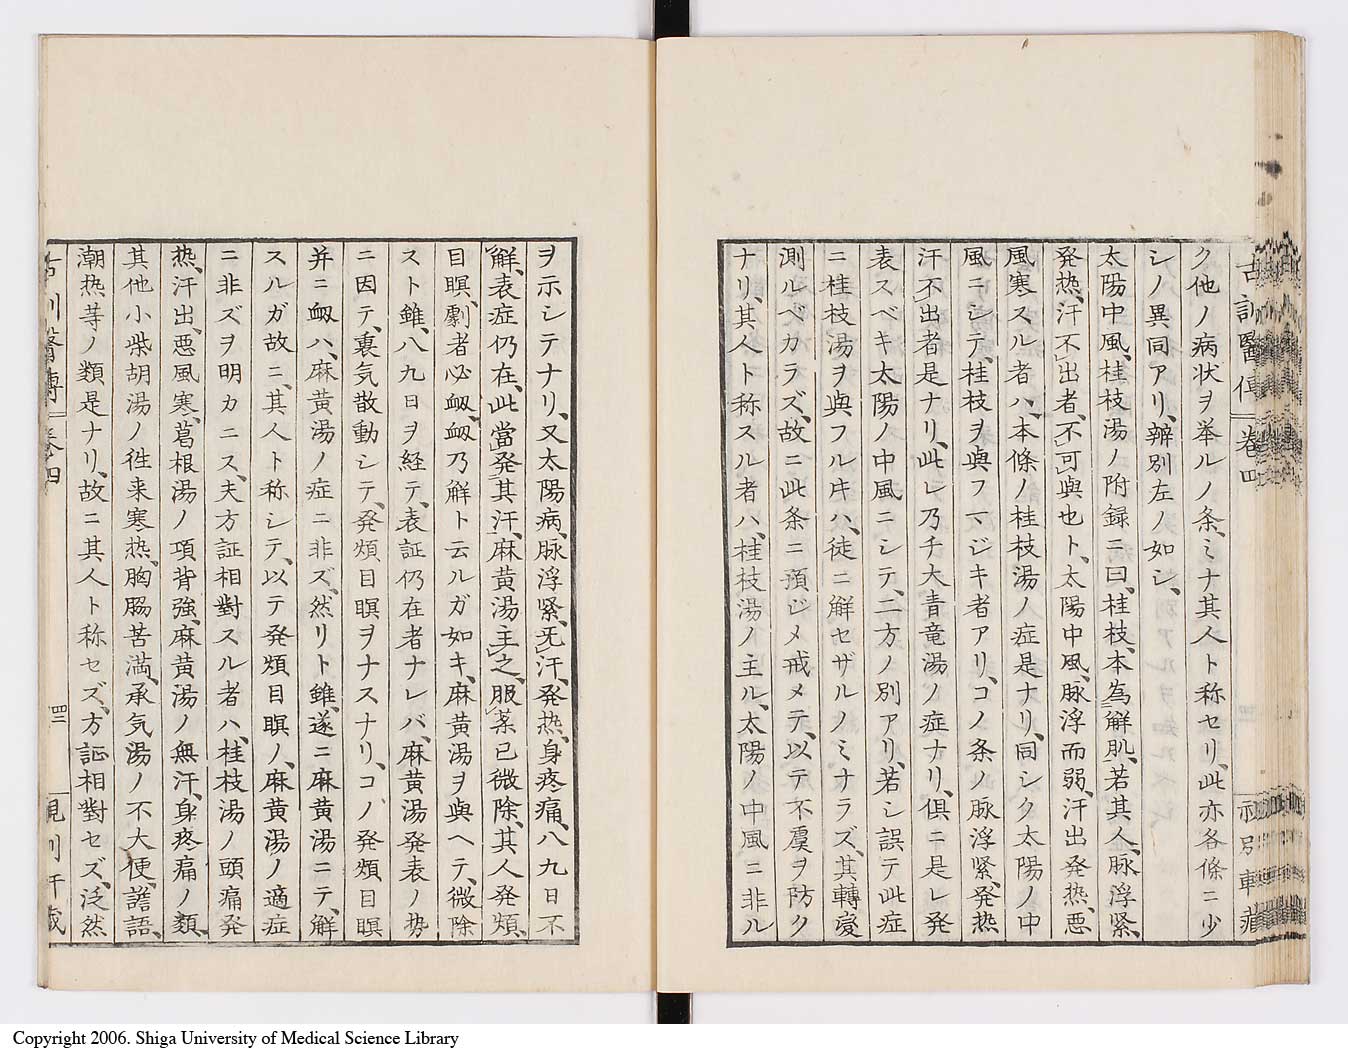 ク他ノ病状ヲ挙ルノ条、ミナ其人ト称セリ、此亦各條ニ少
シノ異同アリ、辨別左ノ如シ、
太陽中風、桂枝湯ノ附録ニ曰、桂枝、本為解肌、若其人、脉浮緊、
発熱、汗不出者、不可與也ト、太陽中風、脉浮而弱、汗出発熱、悪
風寒スル者ハ、本條ノ桂枝湯ノ症是ナリ、同シク太陽ノ中
風ニシテ、桂枝ヲ與フマジキ者アリ、コノ条ノ脉浮緊、発熱
汗不出者是ナリ、此レ乃チ大青竜湯ノ症ナリ、倶ニ是レ発
表スベキ太陽ノ中風ニシテ、二方ノ別アリ、若シ誤テ此症
ニ桂枝湯ヲ與フル片ハ、徒ニ解セザルノミナラズ、其轉変
測ルベカラズ、故ニ此条ニ預ジメ戒メテ、以テ不虞ヲ防ク
ナリ、其人ト称スル者ハ、桂枝湯ノ主ル、太陽ノ中風ニ非ル
ヲ示シテナリ、又太陽病、脉浮緊、无汗、発热、身疼痛、八九日不
解、表症仍在、此當発其汗、麻黄湯主之、服薬已微除、其人発煩、
目瞑、劇者必衂、衂乃解ト云ルガ如キ、麻黄湯ヲ與ヘテ、微除
スト雖、八九日ヲ経テ、表証仍在者ナレバ、麻黄湯発表ノ势
ニ因テ、裏気散動シテ、発煩目瞑ヲナスナリ、コノ発煩目瞑
并ニ衂ハ、麻黄湯ノ症ニ非ズ、然リト雖、遂ニ麻黄湯ニテ、解
スルガ故ニ、其人ト称シテ、以テ発煩目瞑ノ、麻黄湯ノ適症
ニ非ズヲ明カニス、夫方証相對スル者ハ、桂枝湯ノ頭痛発
热、汗出、悪風寒、葛根湯ノ項背強、麻黄湯ノ無汗、身疼痛ノ類、
其他小柴胡湯ノ徃来寒热、胸脇苦満、承気湯ノ不大便、譫語、
潮热等ノ類是ナリ、故ニ其人ト称セズ、方証相對セズ、泛然
古訓醫傳 卷四
四三
Copyright 2006. Shiga University of Medical Science Library